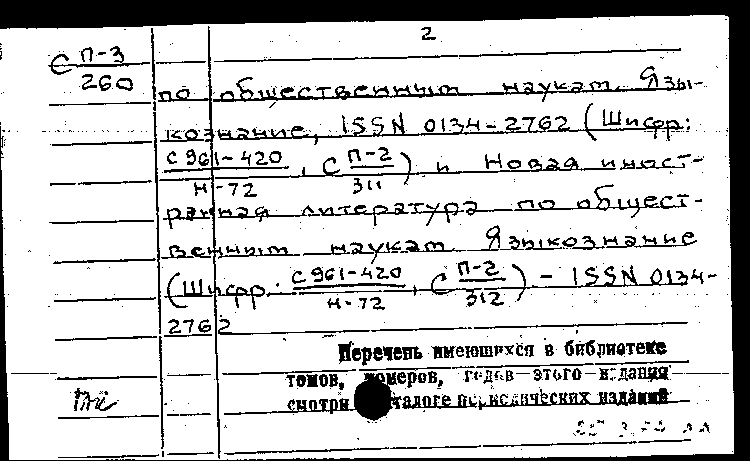 2
С П-3
260
по общественным наукам. Язы-
кознание, ISSN 0134-2762 (Шифр:
С961-420
Н-72
, С П-2
311
) и Новая иност-
ранная литература по общест-
венным наукам. Языкознание
(Шифр: С961-420
Н-72
, С П-2
312
) - ISSN 0134-
2762
Перечень имеющихся в библиотеке
томов, номеров, годов этого издания
смотри талоге периодических изданий